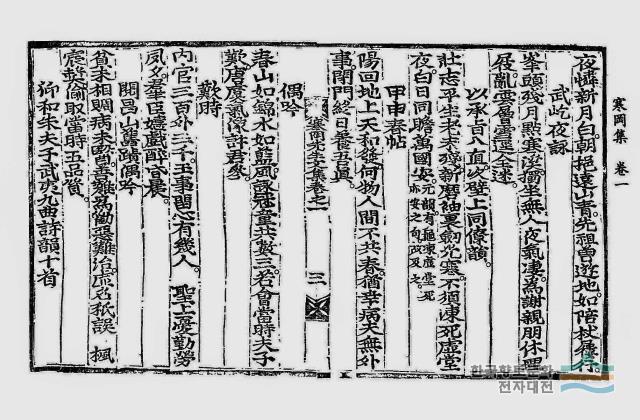 寒岡集 卷一
夜憐新月白。朝挹遠山靑。先祖曾遊地。如陪杖屨行。
武屹夜詠
峯頭殘月點寒溪。獨坐無人夜氣凄。爲謝親朋休理
屐。亂雲層雪逕全迷。
以承旨入直。次壁上同僚韻。
壯志平生老未殘。新磨袖裏劒光寒。不須凍死虛堂
夜。白日同瞻萬國安。元韻。有龜凍虛堂死亦安之句。故及之。
甲申春帖
陽回地上天和發。何物人間不共春。猶幸病夫無外
事。閉門終日養吾眞。
寒岡先生文集卷之一
三
偶吟
春山如錦水如藍。風詠冠童共數三。若會當時夫子
歎。唐虞氣像許君參。
歎時
內官三百外三千。王事關心有幾人。聖上憂勤勞
夙夕。羣臣嬉戱醉昏晨。
開昌山舊墳偶吟
貧未相賙病未醫。善難爲勸惡難治。區名秪誤 楓
宸詔。偸取當時五品資。
仰和朱夫子武夷九曲詩韻十首
한국향토문화
전자대전